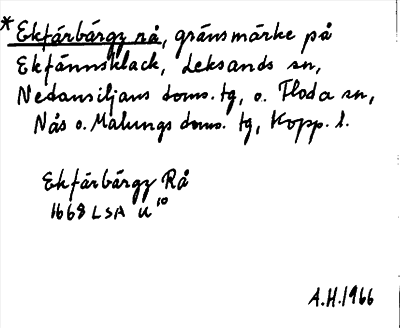 * Ekfárbárgz rå, gränsmärke på
Ekfännsklack, Leksands sn,
Nedansiljans doms. tg, o. Floda sn,
Nås o. Malungs doms. tg, Kopp. l.
Ekfárbárgz Rå
1668 LSA U¹⁰
A.H. 1966